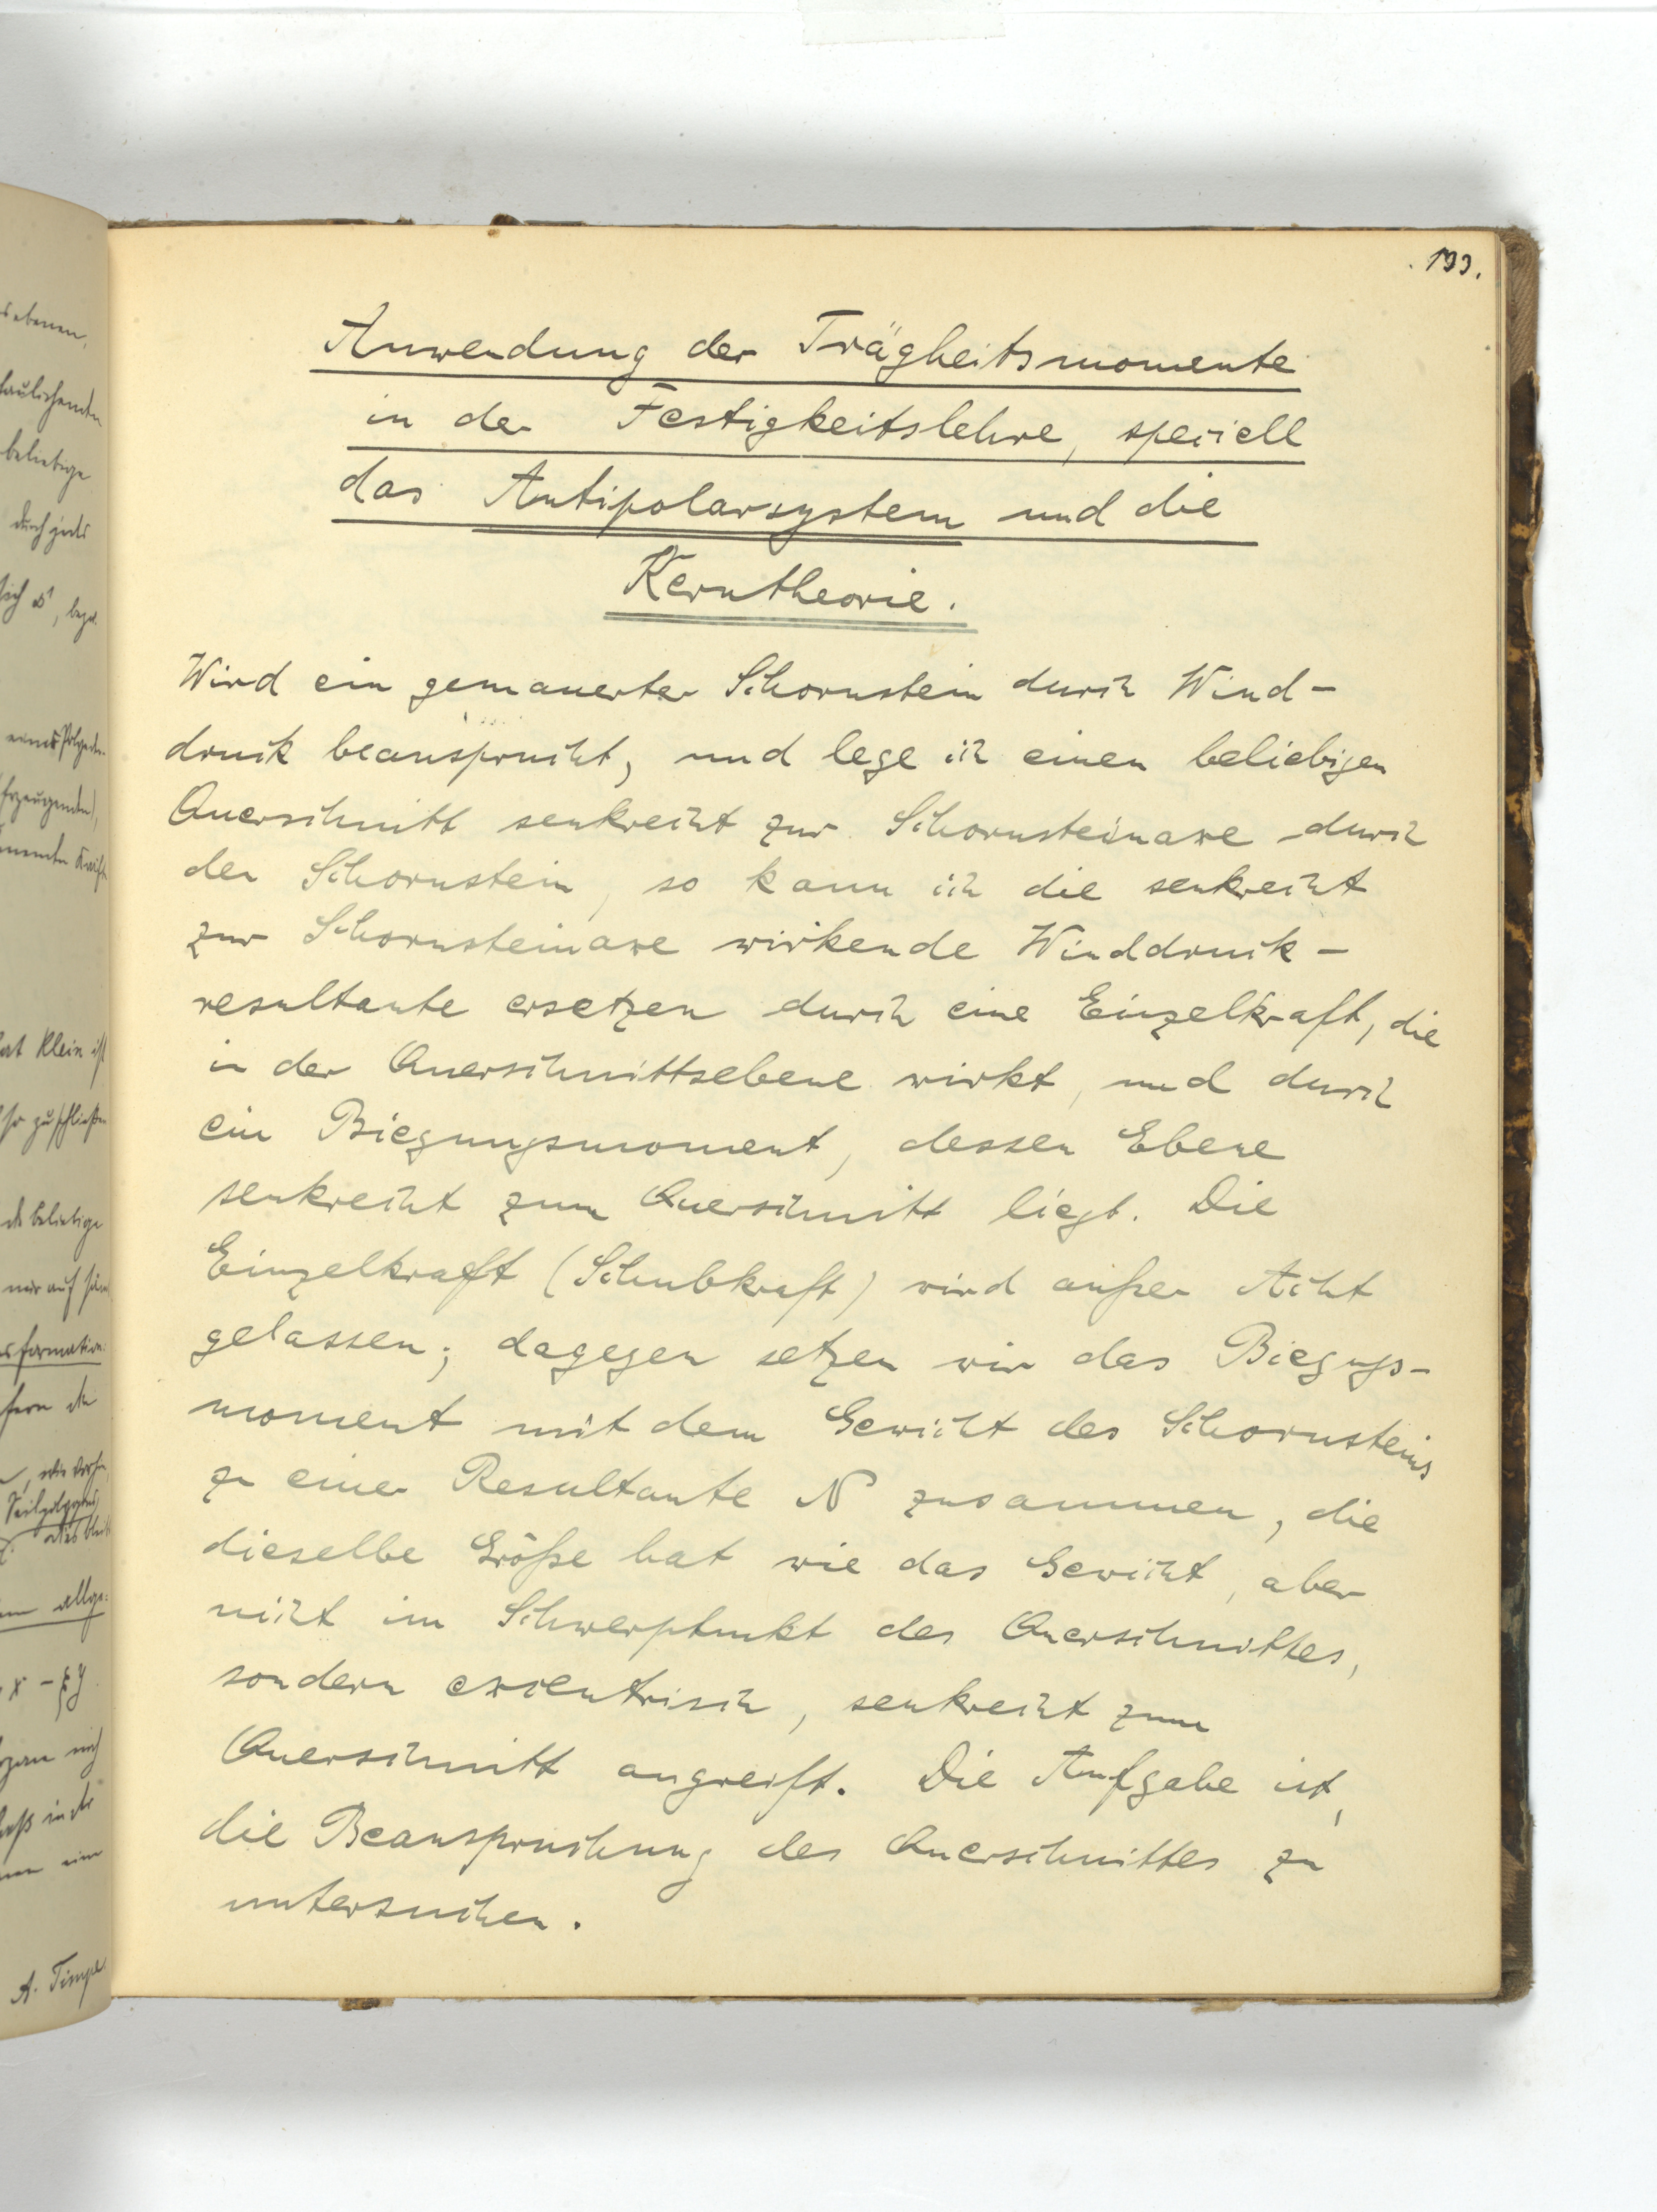 199.
Anwendung der Trägheitsmomente
in der Festigkeitslehre, speciell
das Antipolarsystem und die
Kerntheorie.
Wird ein gemauerter Schornstein durch Wind-
druck beansprucht, und lege ich einen beliebigen
Querschnitt senkrecht zur Schornsteinaxe durch
den Schornstein, so kann ich die senkrecht
zur Schornsteinaxe wirkende Winddruck-
resultante ersetzen durch eine Einzelkraft, die
in der Querschnittsebene wirkt, und durch
ein Biegungsmoment, dessen Ebene
senkrecht zum Querschnitt liegt. Die
Einzelkraft (Schubkraft) wird außer Acht
gelassen; dagegen setzen wir das Biegungs-
moment mit dem Gewicht des Schornsteins
zu einer Resultante N zusammen, die
dieselbe Größe hat wie das Gewicht, aber
nicht im Schwerpunkt des Querschnittes,
sondern excentrisch, senkrecht zum
Querschnitt angreift. Die Aufgabe ist,
die Beanspruchung des Querschnittes zu
untersuchen.
ebenen,
beliebige
durch jede
hat klein ist
so zu schließen
die beliebige
nur auf
formation.
wie vorher,
Seilpolygons,
allge:
x - ξy
A. Timpe.